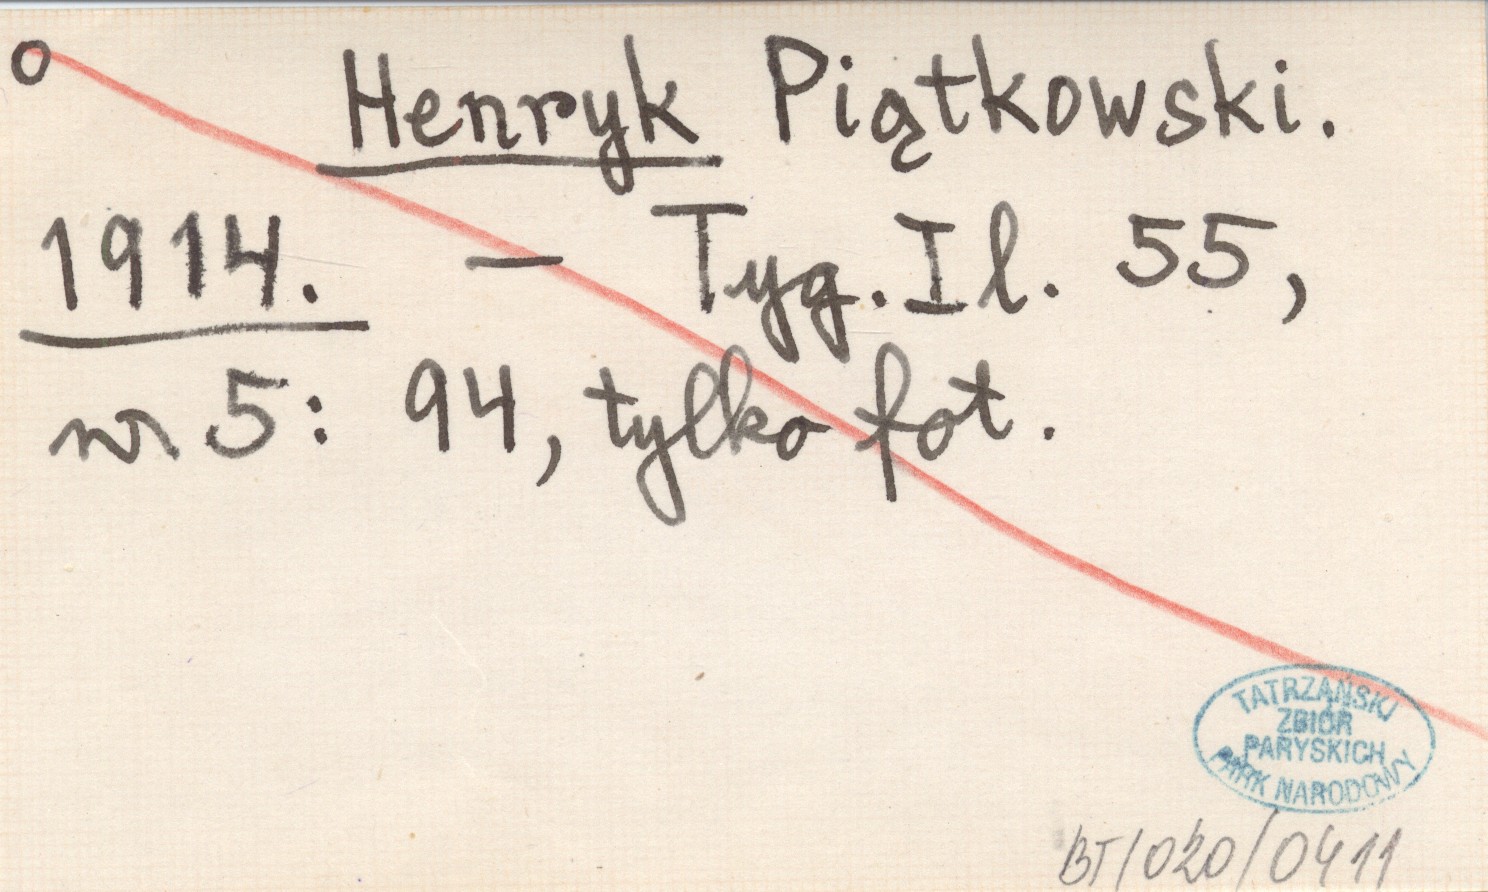 o Henryk Piątkowski.
1914. — Tyg. Il. 55,
nr 5: 94, tylko fot.
TATRZAŃSKI
ZBIÓR
PARYSKICH
PARK NARODOWY
BT/020/0411